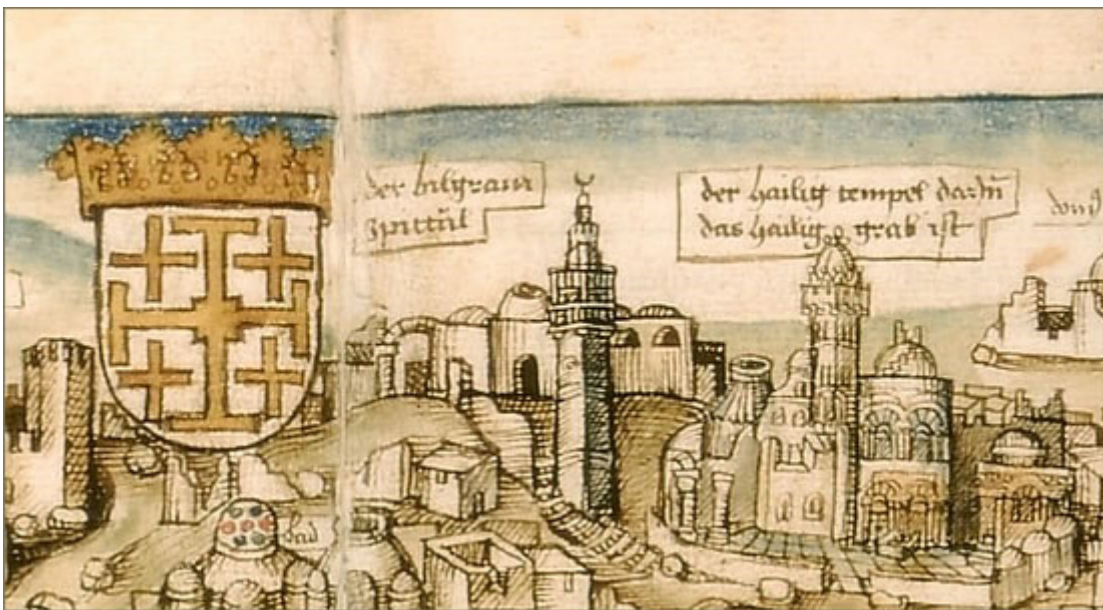 der bilgram
spittal
der hailig tempel darin
das hailig grab ist
bad